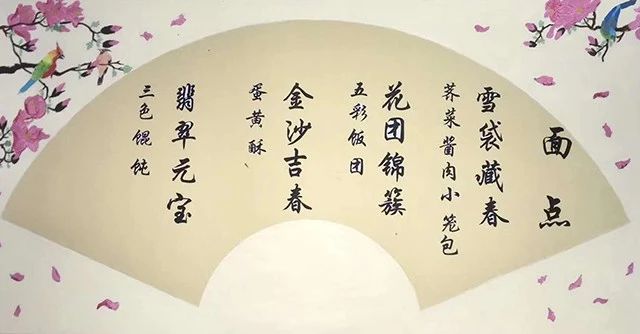 面点
雪袋藏春
荠菜酱肉小笼包
花团锦簇
五彩饭团
金沙吉春
蛋黄酥
翡翠元宝
三色馄饨